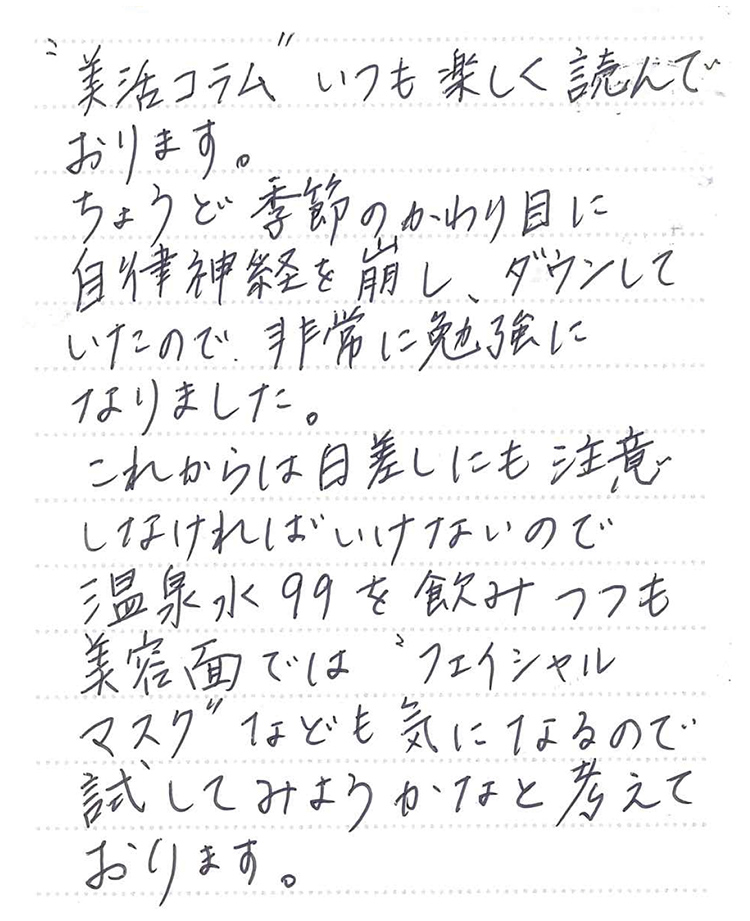 “美活コラム”いつも楽しく読んで
おります。
ちょうど季節のかわり目に
自律神経を崩し、ダウンして
いたので、非常に勉強に
なりました。
これからは日差しにも注意
しなければいけないので
温泉水99を飲みつつも
美容面では“フェイシャル
マスク”なども気になるので
試してみようかなと考えて
おります。